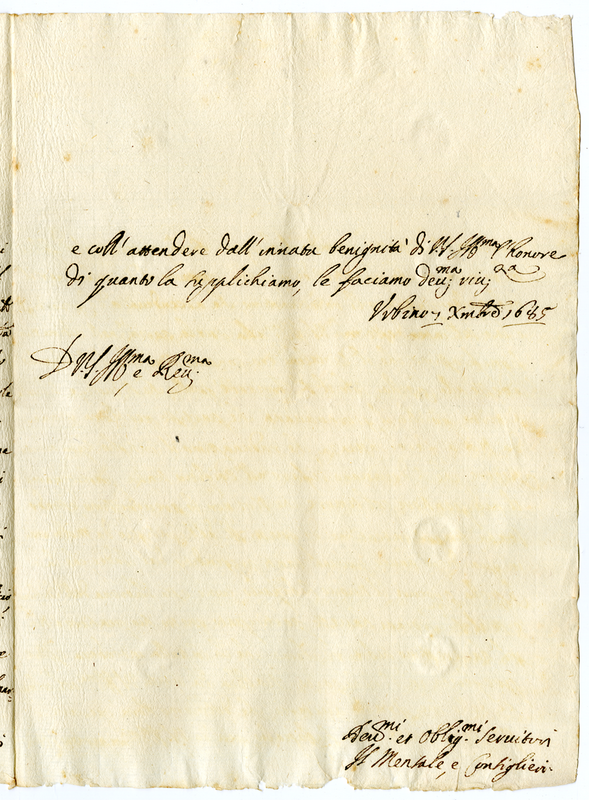 e coll' attendere dall' innata benignità di V. S. Ill.ma l' honore
di quanto la supplichiamo, le faciamo deu.ma riu.za
Urbino 7 Xmbre 1685
D V. S. Ill.ma e Reu.ma
Deu.mi et oblig.mi Seruitori
Il Mensale, e Consiglieri